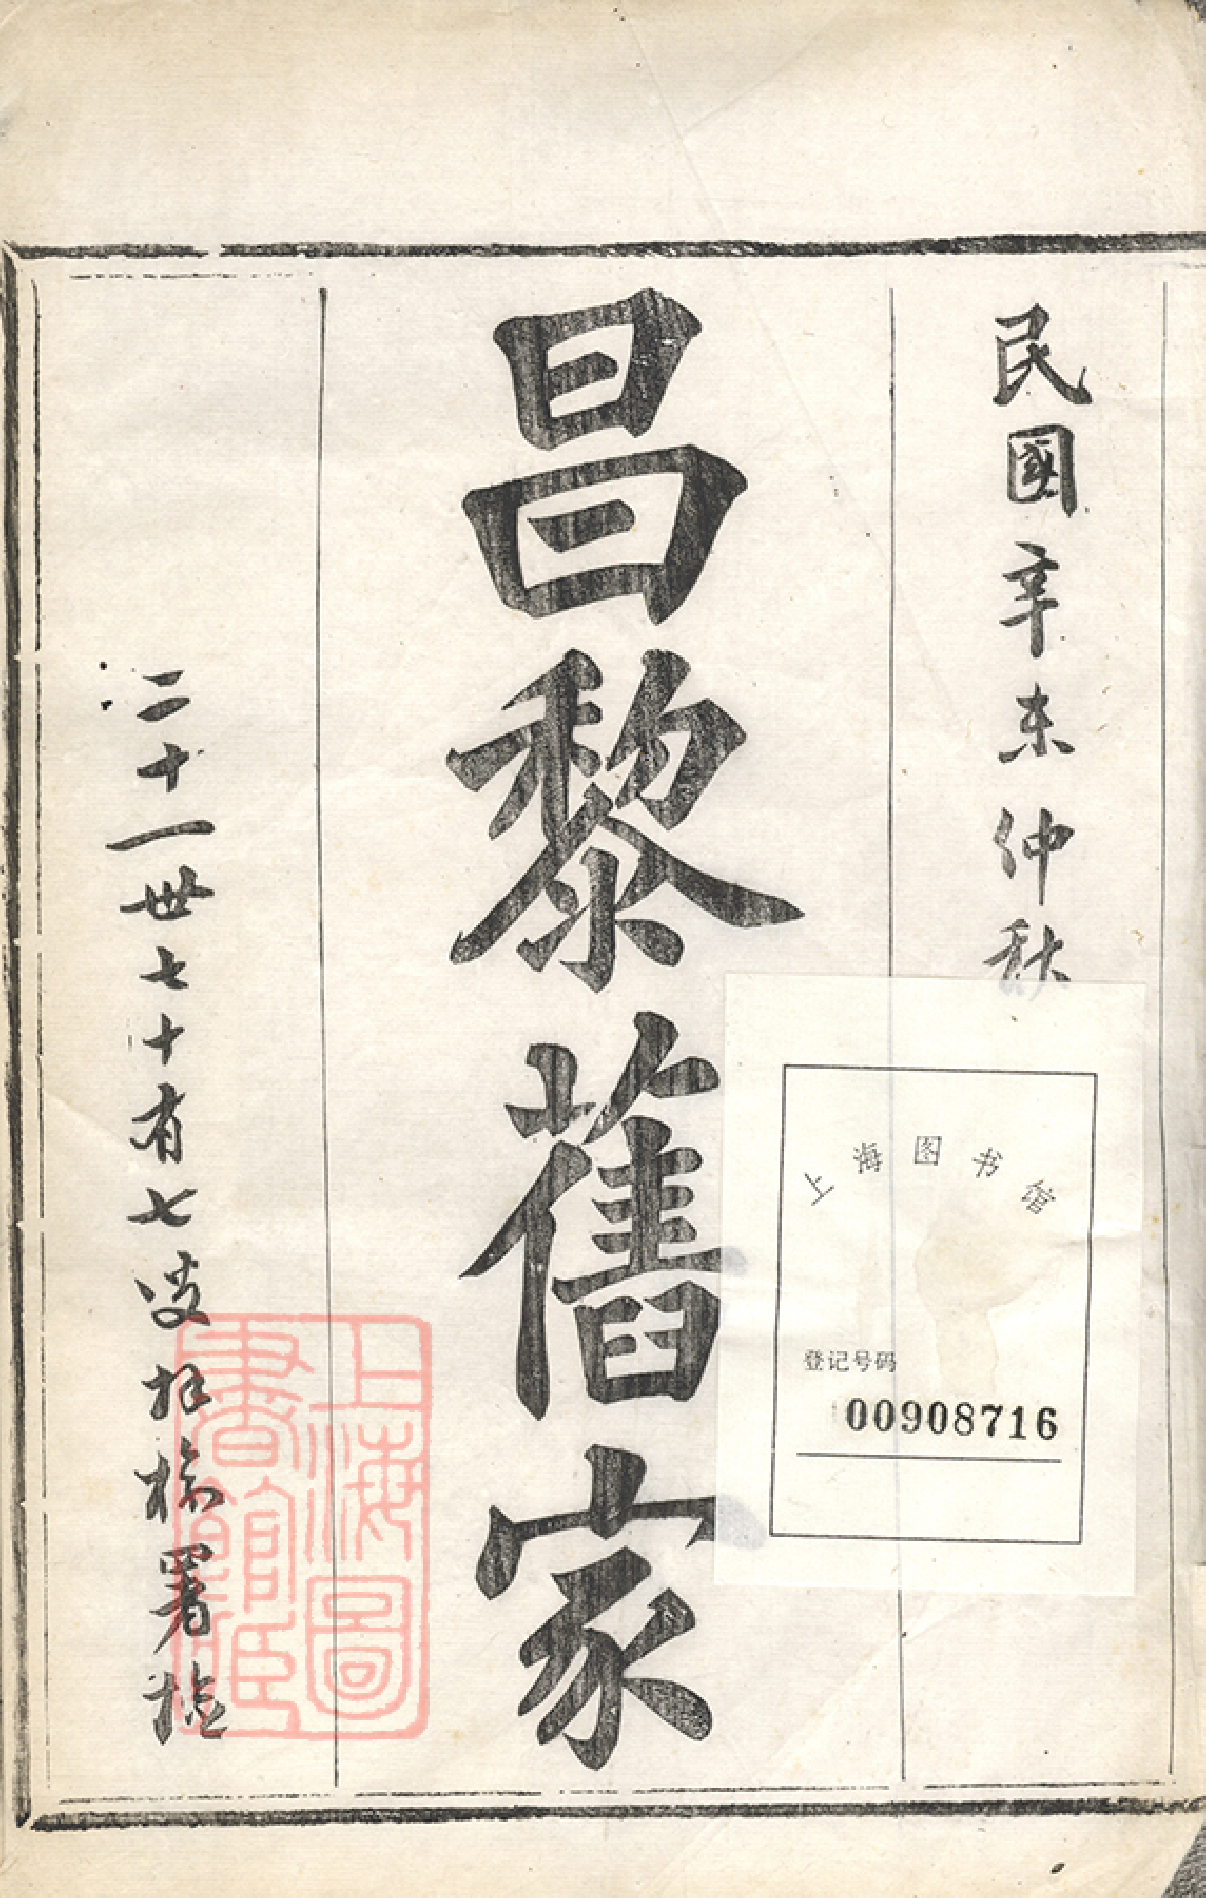 民國辛未仲秋
昌黎舊家
二十一世七十有七叟榆署檢
上海图书馆
登记号码
00908716
上海圖
書館藏